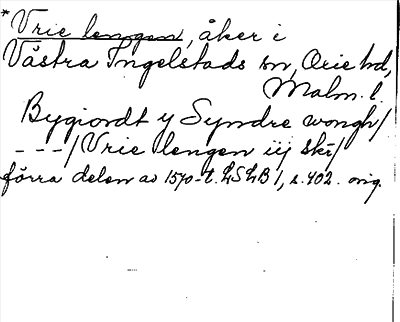 *Vrie lengen, åker i
Västra Ingelstads sn, Oxie hd,
Malm. l.
Bygiordt y Syndre wongh/
- - -/Vrie lengen iij skr/
förra delen av 1570-t. LSLB 1, s. 402. orig.